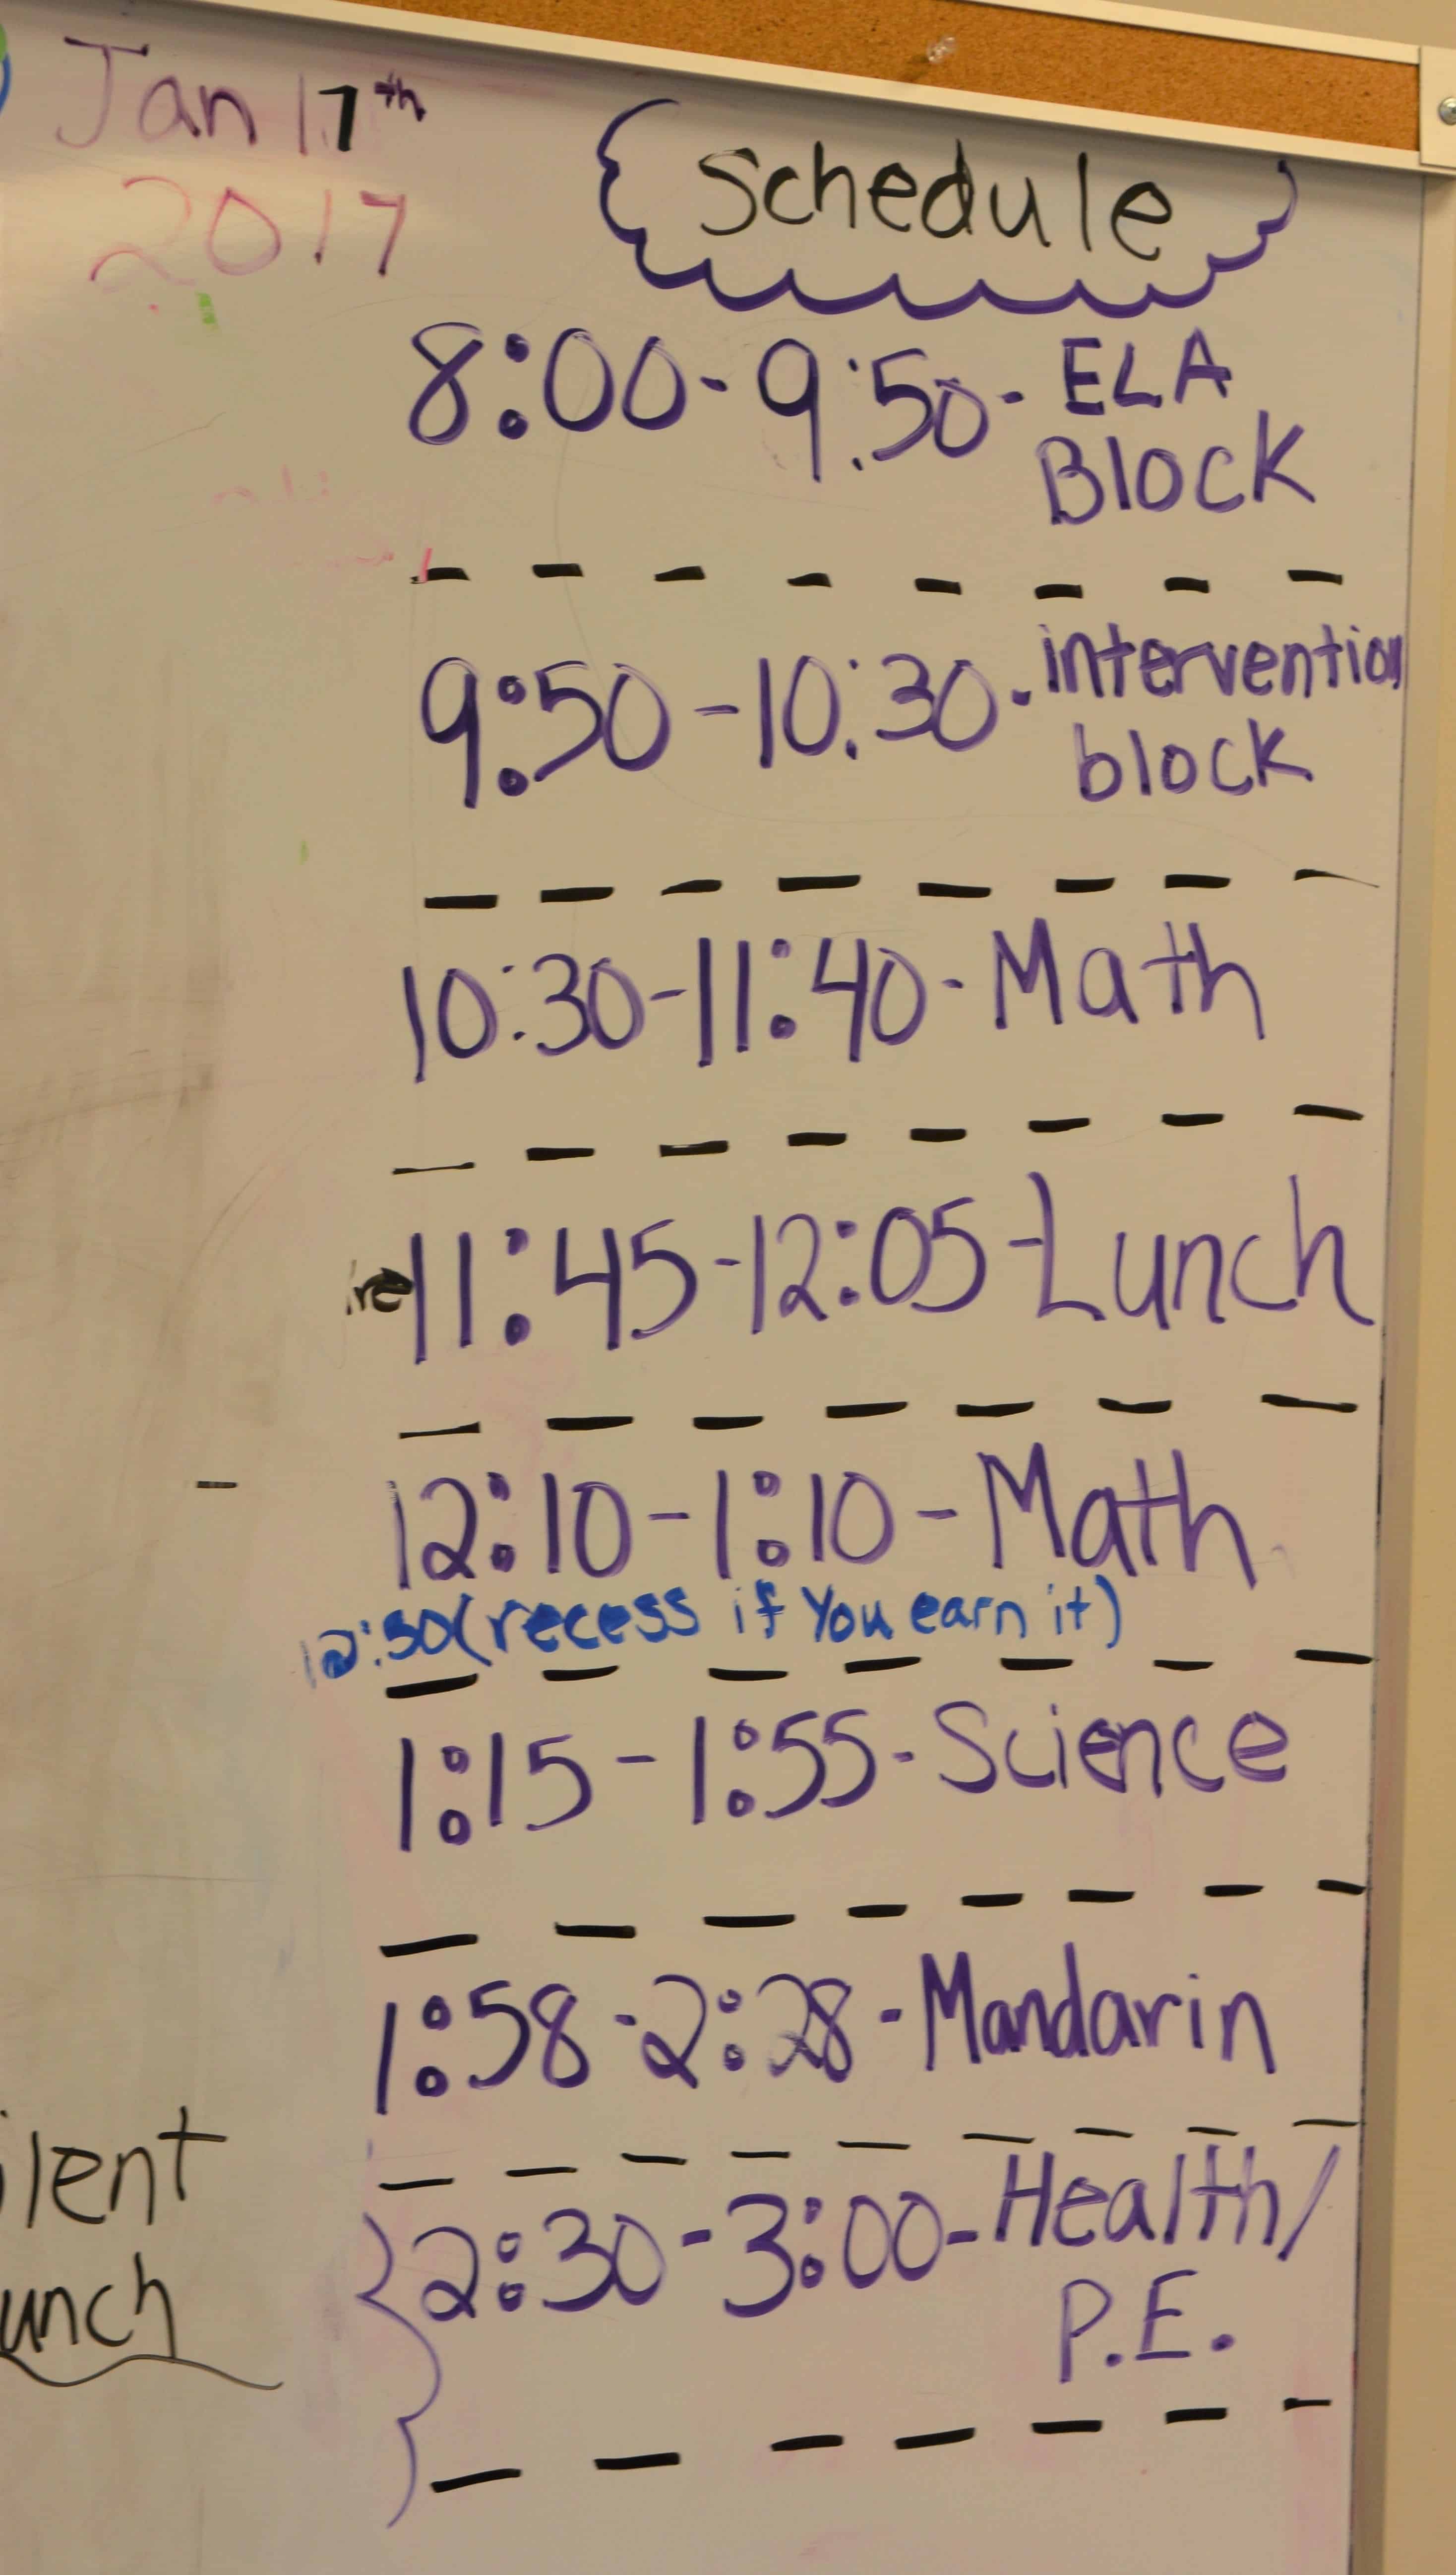 Jan 17th
2017
Schedule
8:00-9:50- ELA
Block
9:50-10:30-intervention
block
10:30-11:40-Math
11:45-12:05-Lunch
12:10-1:10-Math
(recess if You earn it)
1:15-1:55-Science
1:58-2:28-Mandarin
2:30-3:00-Health/
P.E.
ilent
unch